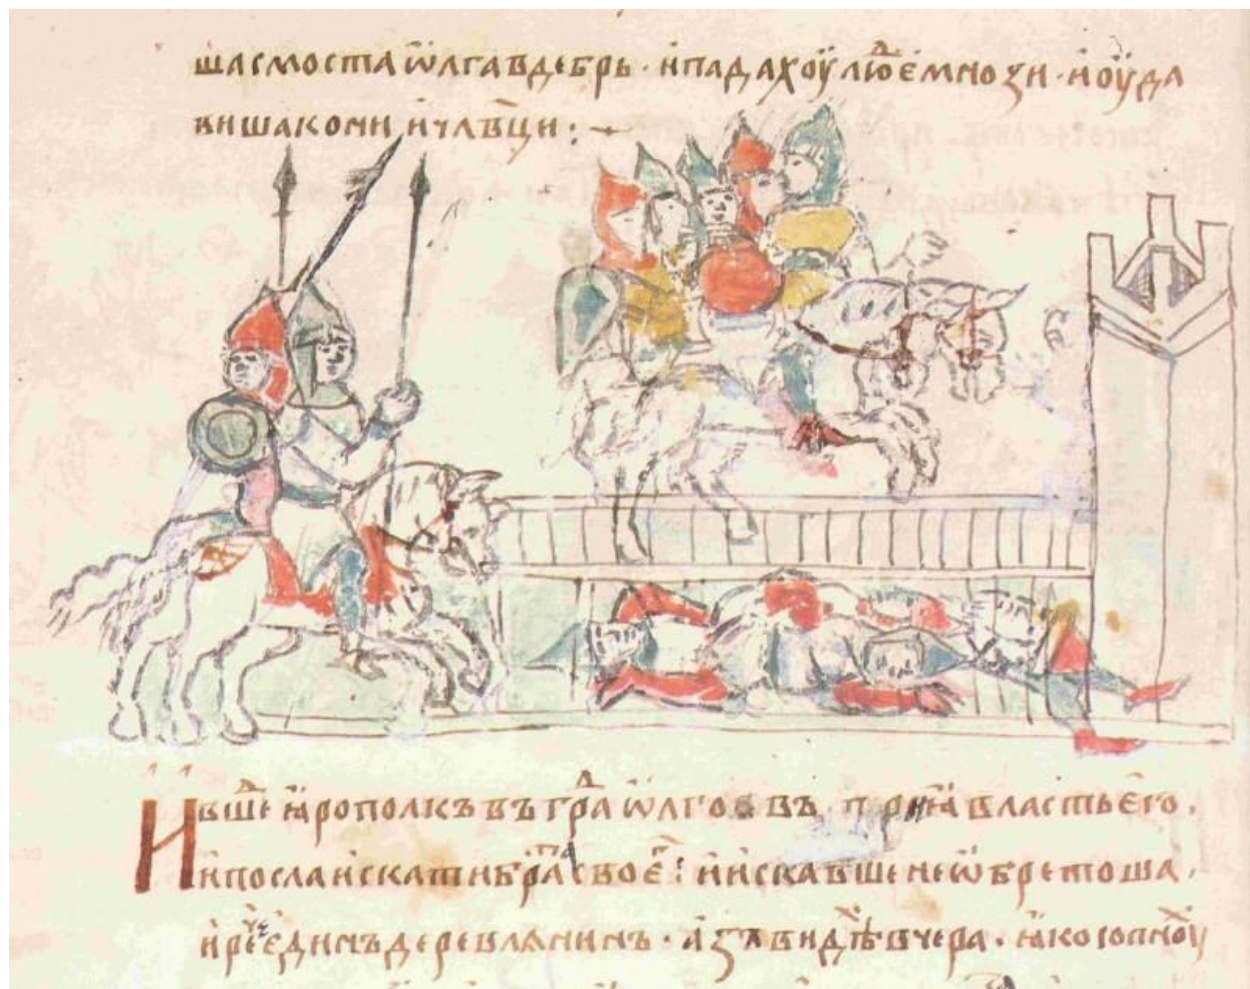 шасмостаѡ̈лгавдебрь · и҆падахоу҆ лю́емнози · и҆оу҆да
вишакони и҆члв҃ци : ~
И вшеꙗ҆рополкъвъгра́ ѡ̈лговъ · приꙗ҆властье҆го ·
и҆посла и҆скатибра́тасвое҆г : и҆ и҆скавшенеѡ҆бретоша ·
и҆рече҆динъдеревлѧнинъ · а҆зъвидѣхвчера · ꙗ҆коіопхноу